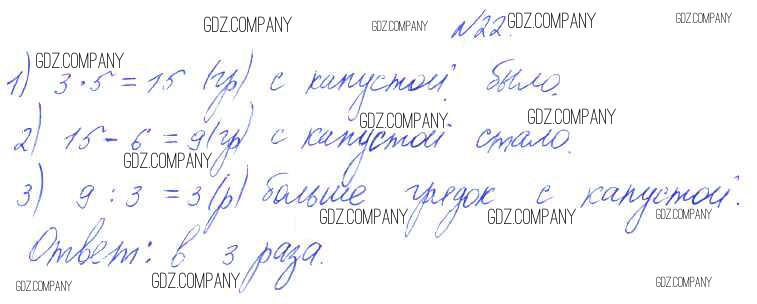 GDZ.COMPANY GDZ.COMPANY №22. GDZ.COMPANY GDZ.COMPANY
GDZ.COMPANY
1) 3·5=15 (гр) с капустой было.
GDZ.COMPANY GDZ.COMPANY
2) 15-6=9(гр) с капустой стало.
GDZ.COMPANY
3) 9:3=3(р) больше грядок с капустой.
GDZ.COMPANY GDZ.COMPANY GDZ.COMPANY
Ответ: в 3 раза.
GDZ.COMPANY GDZ.COMPANY GDZ.COMPANY